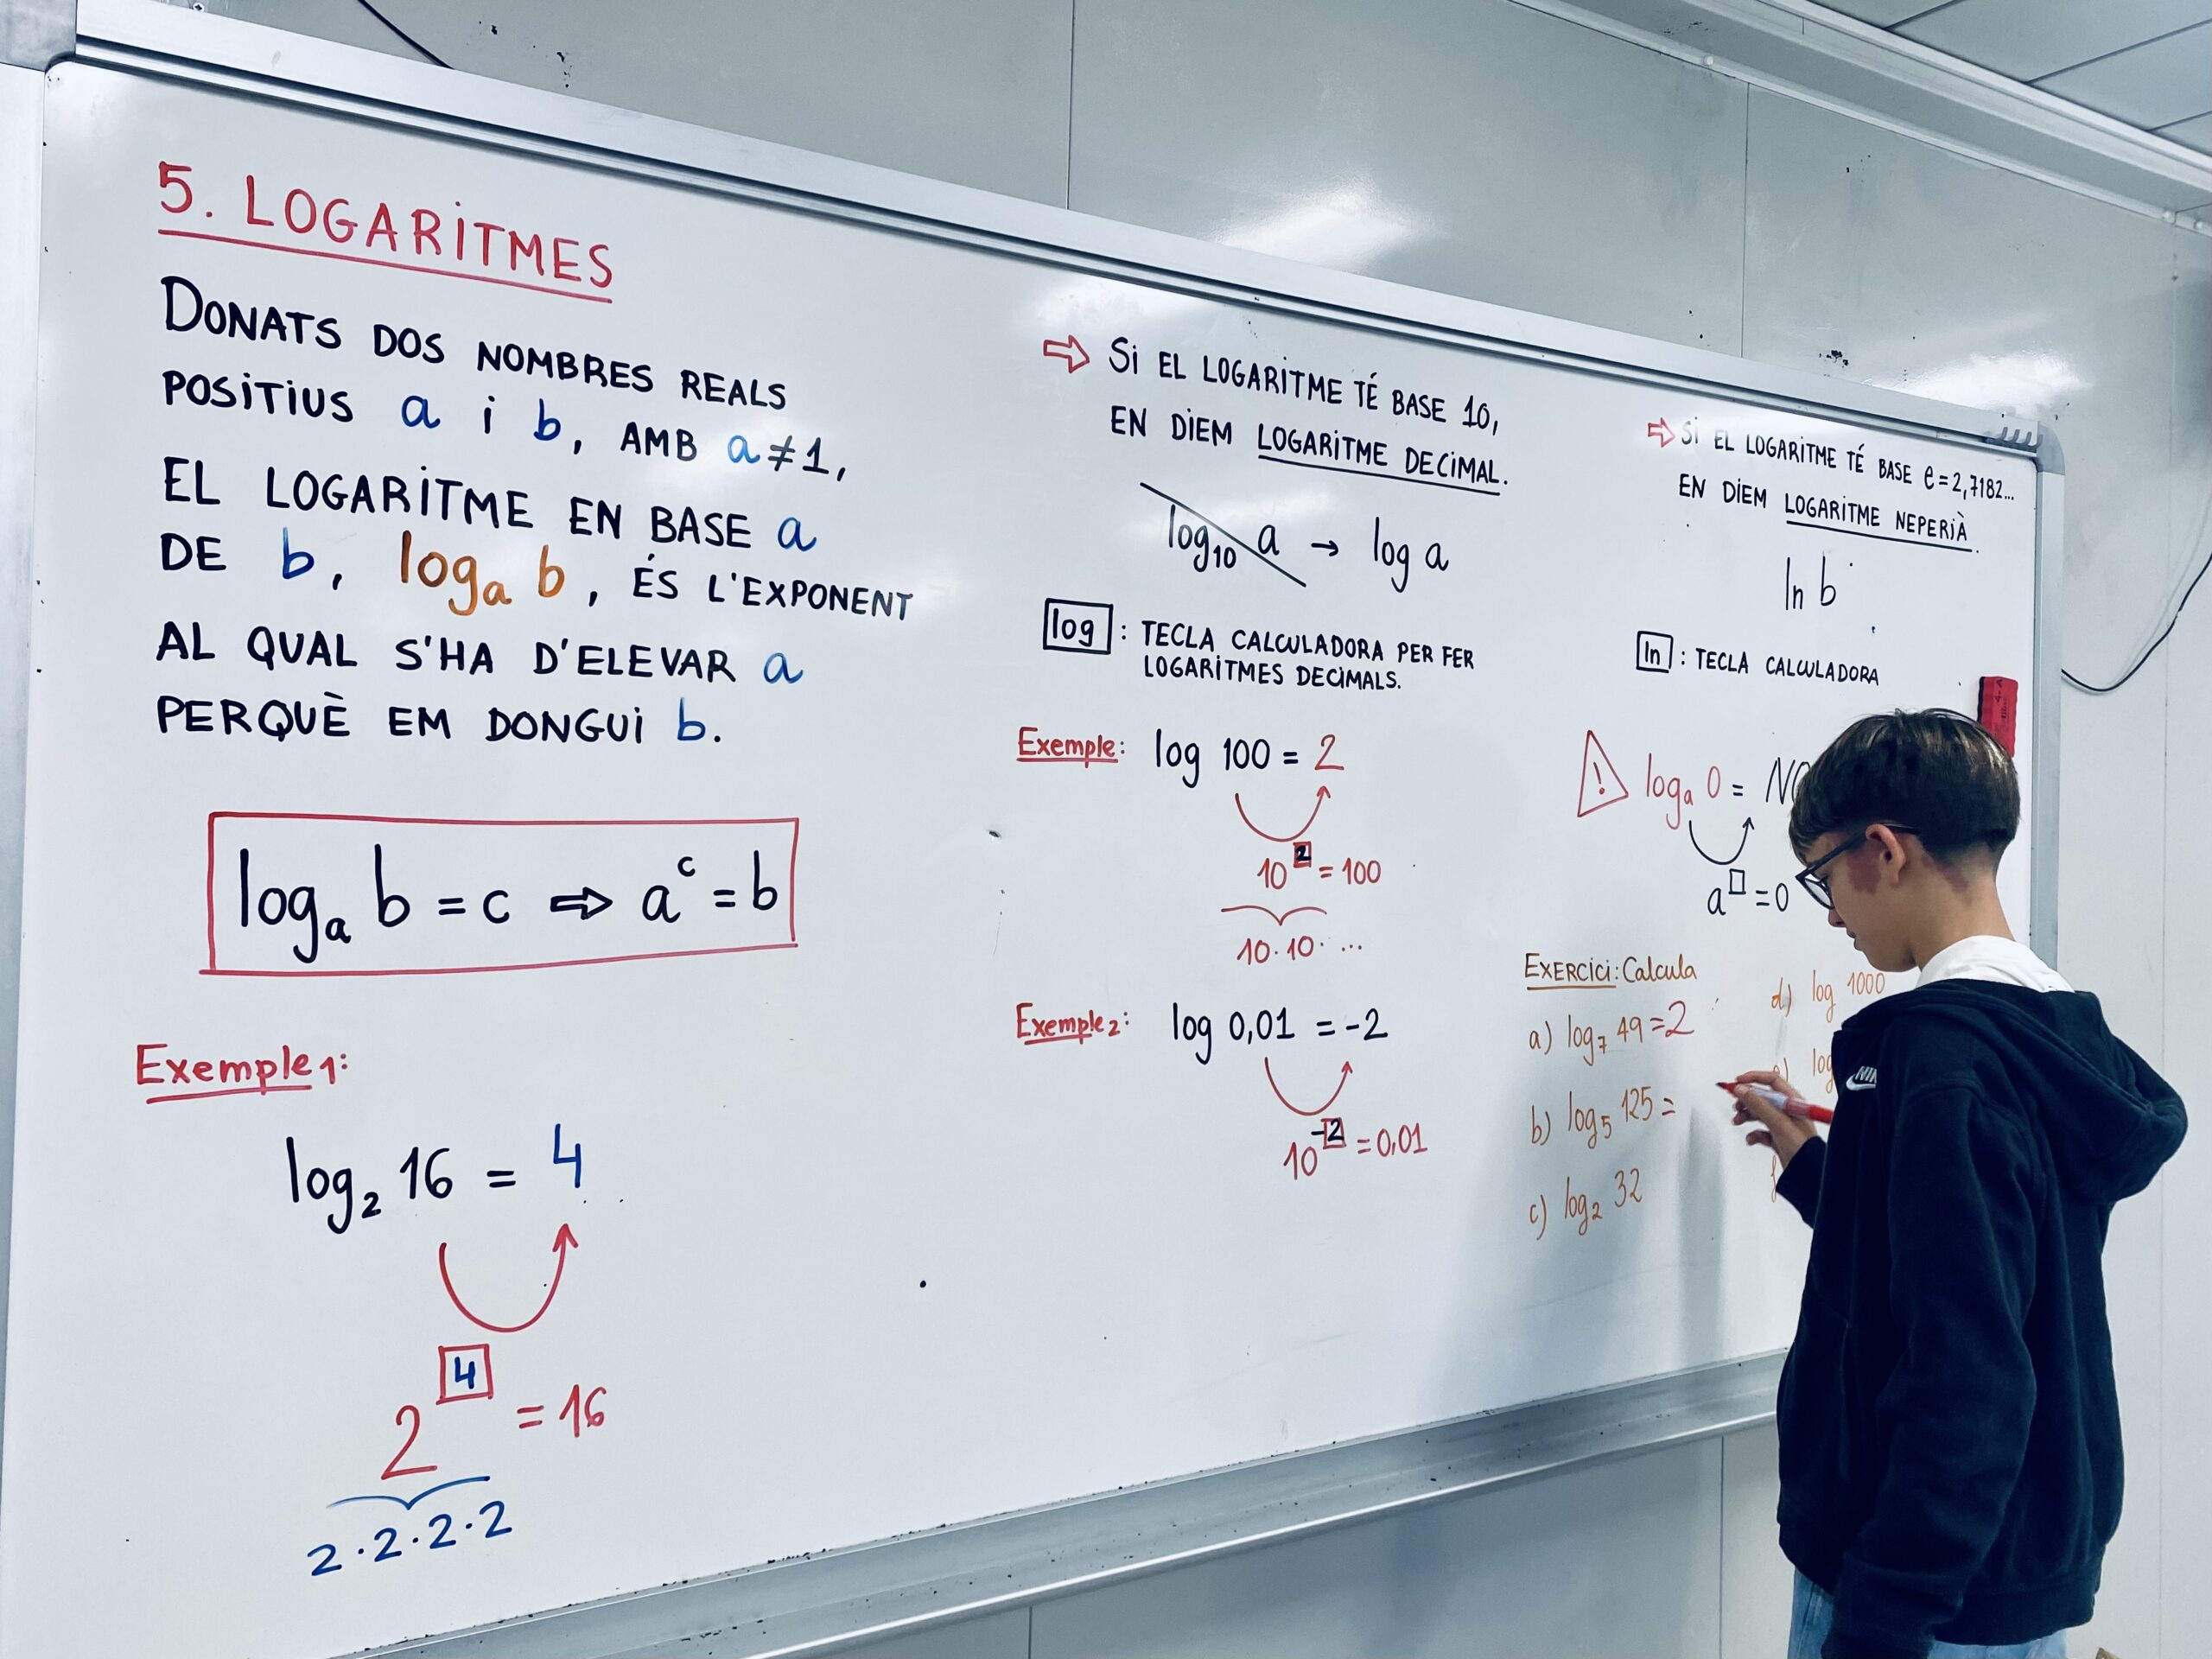 5. LOGARITMES
DONATS DOS NOMBRES REALS
POSITIUS a i b, AMB a≠1,
EL LOGARITME EN BASE a
DE b, logₐ b, ÉS L'EXPONENT
AL QUAL S'HA D'ELEVAR a
PERQUÈ EM DONGUI b.
logₐ b = c ⇨ aᶜ = b
Exemple 1:
log₂ 16 = 4
2⁴ = 16
2·2·2·2
⇨ SI EL LOGARITME TÉ BASE 10,
EN DIEM LOGARITME DECIMAL.
log₁₀ a → log a
log : TECLA CALCULADORA PER FER
LOGARITMES DECIMALS.
Exemple: log 100 = 2
10² = 100
10·10· ...
Exemple 2: log 0,01 = -2
10⁻² = 0,01
⇨ SI EL LOGARITME TÉ BASE e = 2,7182...
EN DIEM LOGARITME NEPERIÀ.
ln b
ln : TECLA CALCULADORA
! logₐ 0 =
a□ = 0
EXERCICI: Calcula
a) log₇ 49 = 2
b) log₅ 125 =
c) log₂ 32
d) log 1000
log
NIK